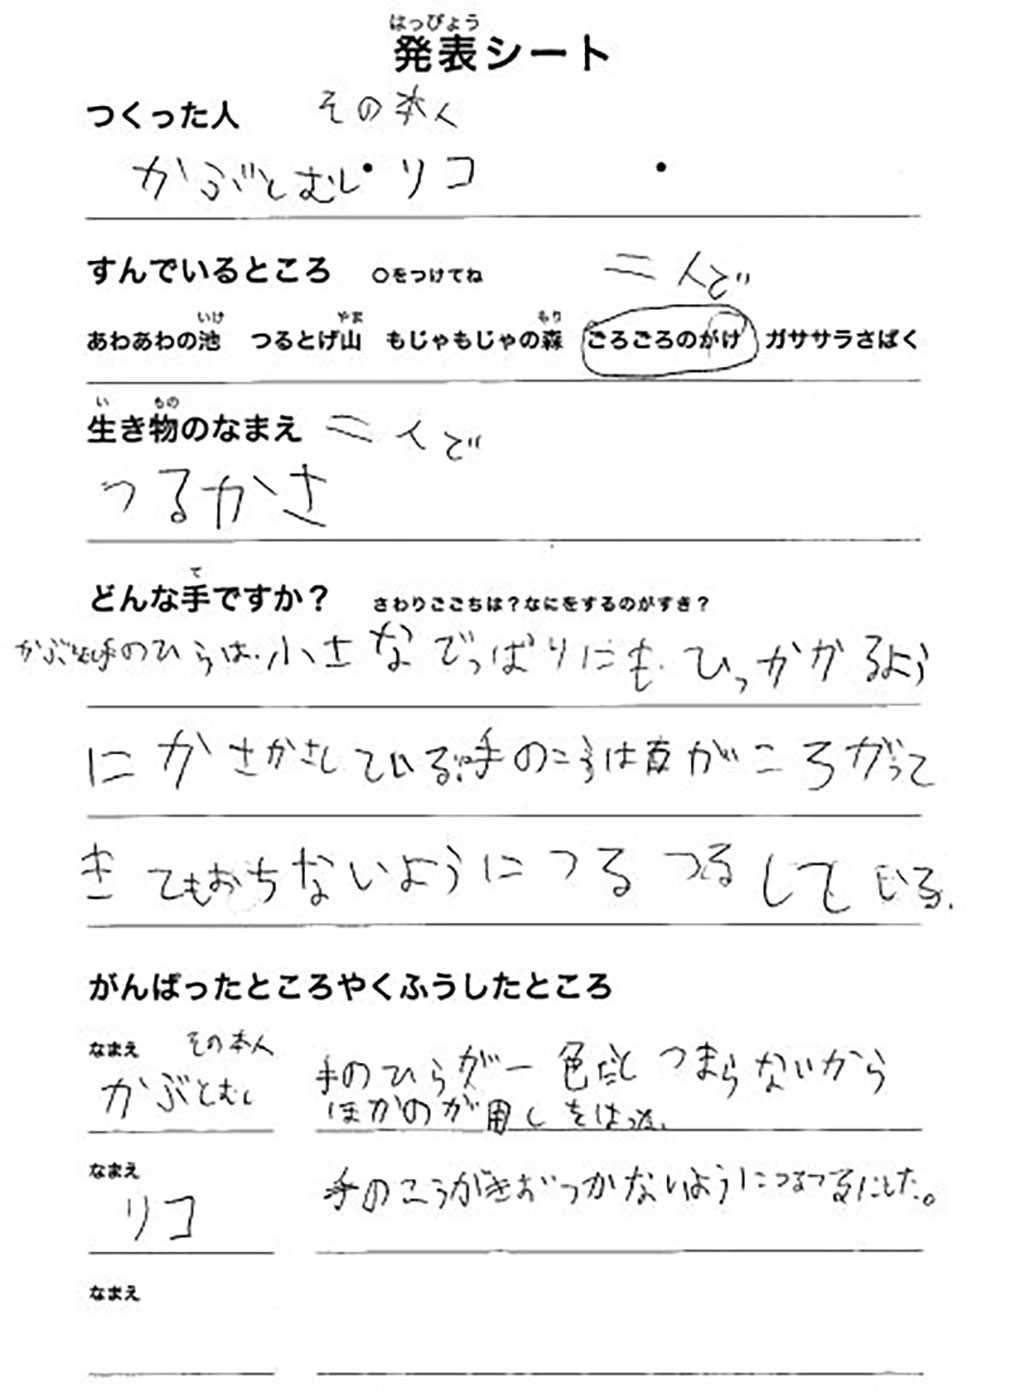 はっぴょう
発表シート
つくった人 その本人
かぶとむし・リコ
すんでいるところ ○をつけてね 二人で
いけ やま もり
あわあわの池 つるとげ山 もじゃもじゃの森 ごろごろのがけ ガササラさばく
い もの
生き物のなまえ 二人で
つるかさ
て
どんな手ですか？ さわりごこちは？なにをするのがすき？
手のひらは、小さなでっぱりにも、ひっかかるよう
にかさかさしている。手のこうは がころがって
きてもおちないようにつるつるしている.
がんばったところやくふうしたところ
なまえ その本人
かぶとむし 手のひらが一色だとつまらないから
ほかのが用しをはった。
なまえ
リコ 手のこうがきおつかないようにつるつるにした。
なまえ